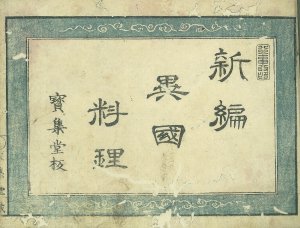 新編
異國
料理
寳集堂板